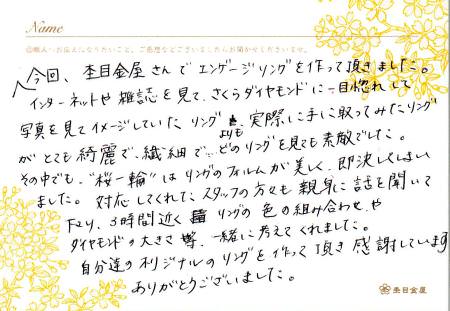 Name
◎職人へお伝えになりたいこと、ご感想などございましたらお聞かせくださいませ。
今回、杢目金屋さんでエンゲージリングを作って頂きました。
インターネットや雑誌を見て、さくらダイヤモンドに一目惚れして
写真を見てイメージしていたリングよりも、実際に手に取ってみたリング
がとても綺麗で、繊細で、どのリングを見ても素敵でした。
その中でも、"桜一輪"はリングのフォルムが美しく、即決してしまい
ました。対応してくれたスタッフの方々も親身に話を聞いて
下さり、3時間近くリングの色の組み合わせや
ダイヤモンドの大きさ等、一緒に考えてくれました。
自分達のオリジナルのリングを作って頂き感謝しています
ありがとうございました。
杢目金屋